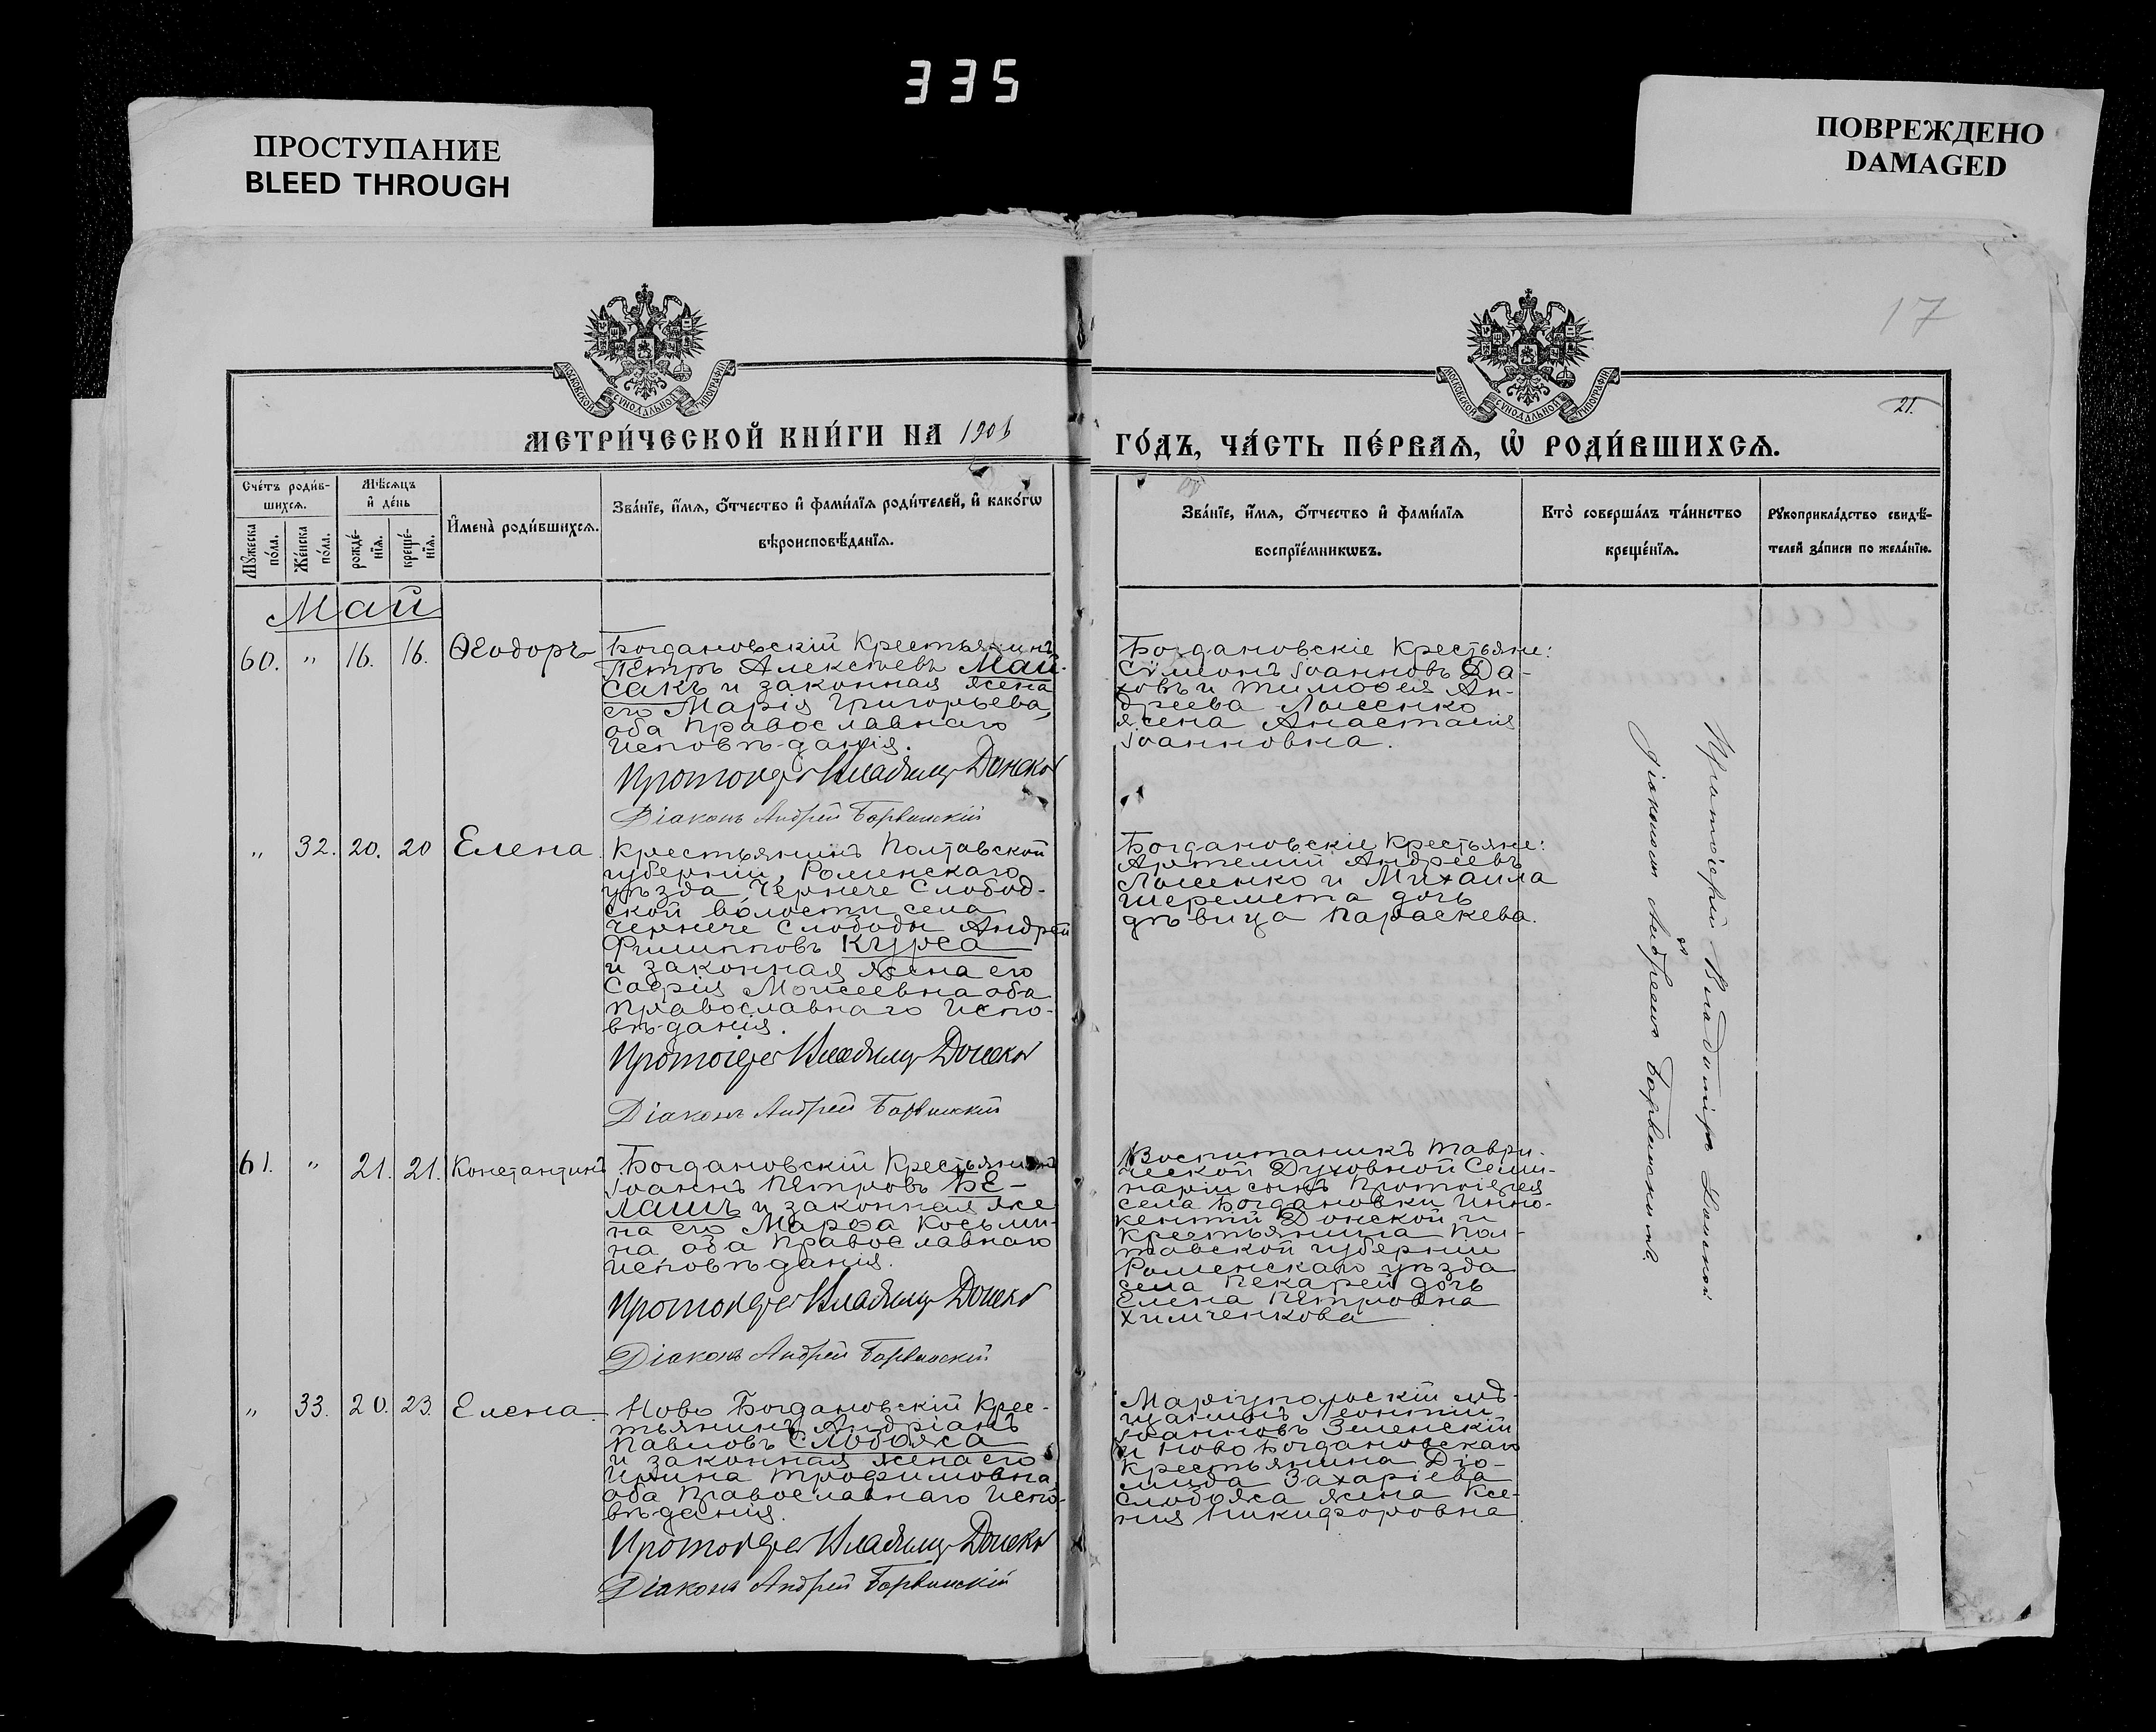 335
ПРОСТУПАНИЕ
BLEED THROUGH
ПОВРЕЖДЕНО
DAMAGED
17
МОСКОВСКОЙ СѴНОДАЛЬНОЙ ТИПОГРАФІИ
МОСКОВСКОЙ СѴНОДАЛЬНОЙ ТИПОГРАФІИ
21.
МЕТРИ́ЧЕСКОЙ КНИ́ГИ НА 1906
ГО́ДЪ, ЧА́СТЬ ПЕ́РВАѦ, Ѡ҆ РОДИ́ВШИХСѦ.
Сче́тъ роди́в-
шихсѧ.
Мꙋ́жеска
по́ла.
Же́нска
по́ла.
Мѣ́сѧцъ
и҆ де́нь
рожде́-
нїѧ.
креще́-
нїѧ.
И҆мена̀ роди́вшихсѧ.
Зва́нїе, и҆́мѧ, ѻ҆́тчество и҆ фами́лїѧ роди́телей, и҆ како́гѡ
вѣроисповѣ́данїѧ.
Зва́нїе, и҆́мѧ, ѻ҆́тчество и҆ фами́лїѧ
воспрїе́мникѡвъ.
Кто̀ соверша́лъ та́инство
креще́нїѧ.
Рꙋкоприкла́дство свидѣ́-
телей за́писи по жела́нїю.
Май
60. " 16. 16. Ѳеодоръ
Богдановскій Крестьянинъ
Петръ Алексѣевъ Май-
сакъ и законная жена
его Марія Григорьева,
оба Православнаго
исповѣданія.
Протоіерей Владимиръ Донской
Діаконъ Андрей Борвинскій
Богдановскіе Крестьяне:
Сѵмеонъ Іоанновъ Да-
ховъ и Тимоѳея Ан-
дреева Лысенко
жена Анастасія
Іоанновна.
" 32. 20. 20 Елена.
Крестьянинъ Полтавской
губерніи, Роменскаго
уѣзда, Чернече Слобод-
ской волости села
Чернече Слободы Андрей
Филипповъ Курса
и законная жена его
Софія Моисеевна оба
Православнаго Испо-
вѣданія.
Протоіерей Владимиръ Донской
Діаконъ Андрей Борвинскій
Богдановскіе Крестьяне:
Артемій Андреевъ
Лысенко и Михаила
Шеремета дочь
дѣвица Параскева.
61. " 21. 21. Константинъ
Богдановскій Крестьянинъ
Іоаннъ Петровъ Бе-
лашъ и законная же
на его Марѳа Косьми-
на оба Православнаго
исповѣданія.
Протоіерей Владимиръ Донской
Діаконъ Андрей Борвинскій
Воспитаникъ Таври-
ческой Духовной Семи-
наріи сынъ Протоіерея
села Богдановки Инно-
кентій Донской и
крестьянина Пол-
тавской губерніи
Роменскаго уѣзда
села Пекарей дочь
Елена Петровна
Химченкова
" 33. 20. 23. Елена.
Ново Богдановскій Крес-
тьянинъ Андріанъ
Павловъ Слобожа
и законная жена его
Ирина Трофимовна,
оба Православнаго Испо-
вѣданія.
Протоіерей Владимиръ Донской
Діаконъ Андрей Борвинскій
Маріупольскій мѣ-
щанинъ Леонтій
Іоанновъ Зеленскій
и Ново Богдановскаго
Крестьянина Діо-
мида Захаріева
Слобожа жена Ксе-
нія Никифоровна
Протоіерей Владиміръ Донской
съ
діакономъ Андреемъ Борвинскимъ.